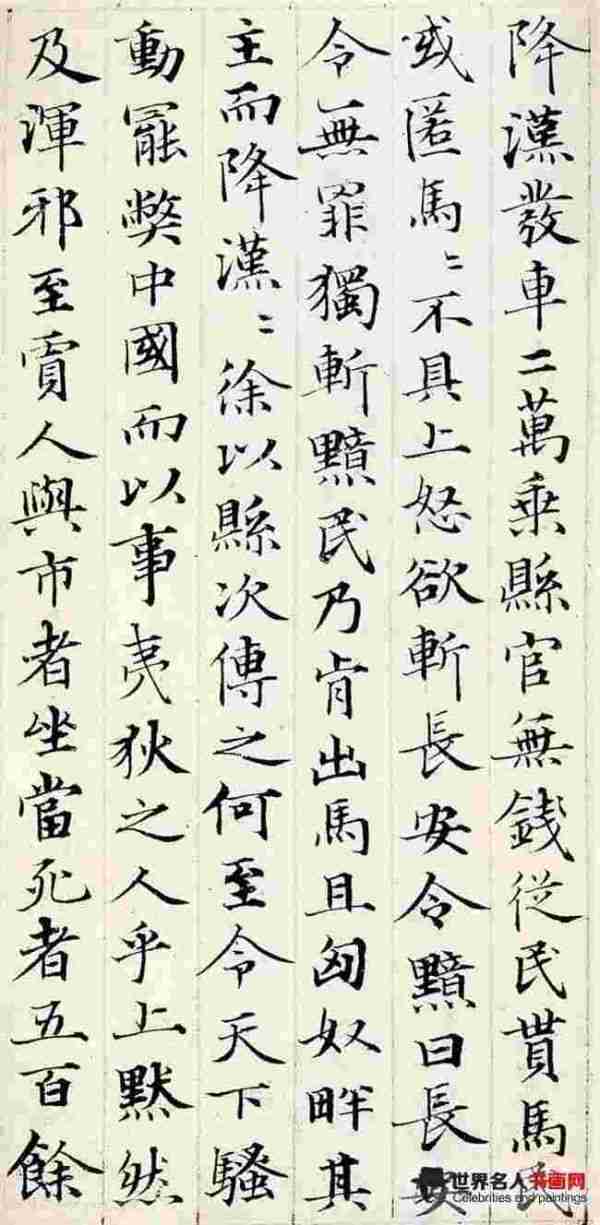 降漢發車二萬乘縣官無錢從民貰馬民
或匿馬〻不具上怒欲斬長安令黯曰長安
令無罪獨斬黯民乃肯出馬且匈奴畔其
主而降漢〻徐以縣次傳之何至令天下騷
動罷弊中國而以事夷狄之人乎上默然
及渾邪至賈人與市者坐當死者五百餘
世界名人书画网
Celebrities and paintings